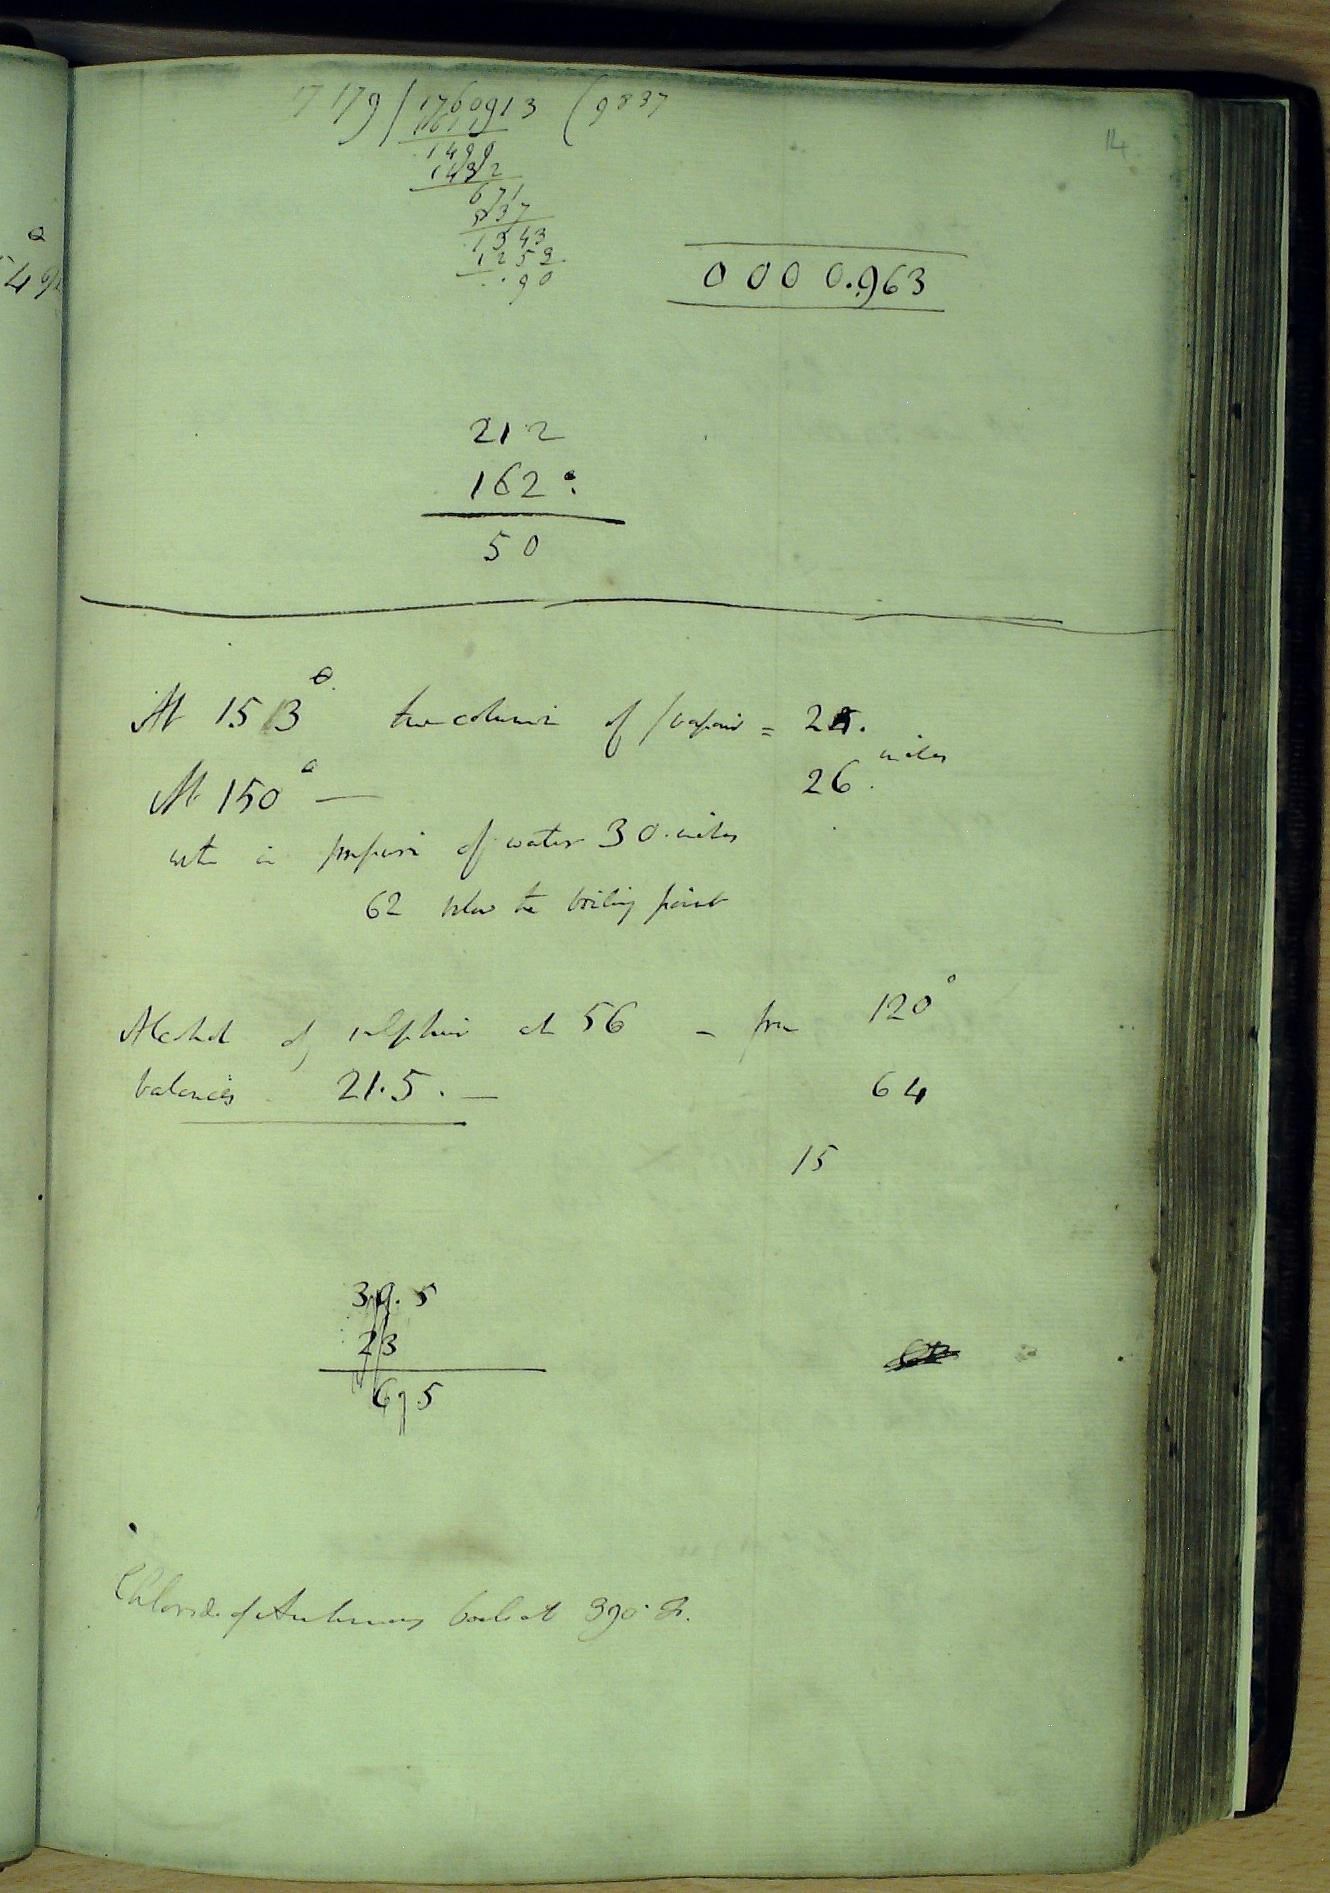 14
17 179 / 1760913 ( 9837
1611
1499
1432
671
537
1343
1253
90
0 0 0 0.963
212
162°
50
At 153° the column of vapour = 25.
At 150° — 26. inches
of water 30. inches
62 below the boiling point
Alcohol of sulphur at 56 = from 120°
balances 21.5. —
64
15
39.5
23
6 5
Chloride of Antimony boils at 390° F.